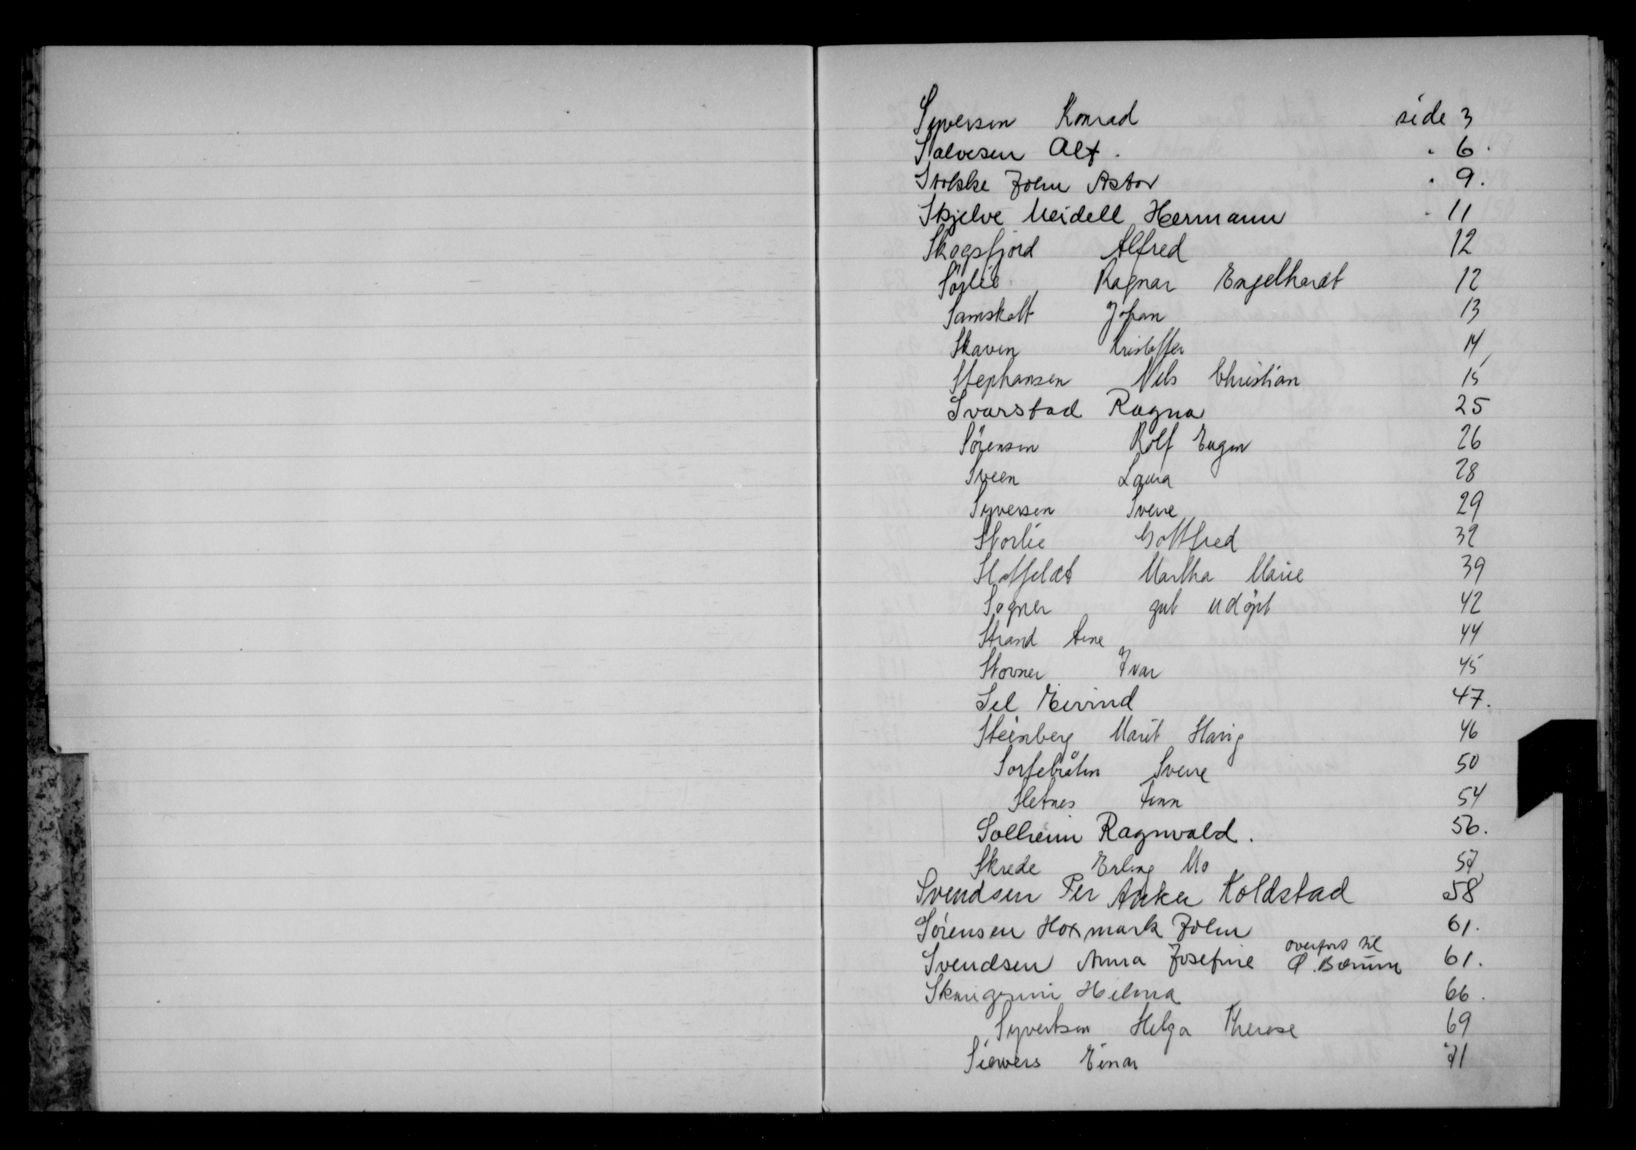 Syversen Konrad side 3
Salvesen Alf. " 6.
Stokke John Astor " 9.
Skjelve Meidell Hermann " 11
Skogsfjord Alfred 12
Sørlie Ragnar Engelhardt 12
Samskott Johan 13
Skaven Kristoffer 14
Stephansen Nils Christian 15
Svarstad Ragna 25
Sørensen Rolf Eugen 26
Sveen Laura 28
Syversen Sverre 29
Storlie Gottfred 32
Martha Marie 39
Sogner gut udøpt 42
Strand Arne 44
Stovner Ivar 45
Sel Eivind 47.
Steinberg Marit Havig 46
Sortebråten Sverre 50
Sletnes Finn 54
Solheim Ragnvald. 56.
Skrede Erling Mo 57
Svendsen Per Anker Koldstad 58
Sørensen Hoxmark John 61.
Svendsen Anna Josefine overført til Ø. Bærum 61.
Hilma 66.
Syvertsen Helga Therese 69
Siewers Einar 71